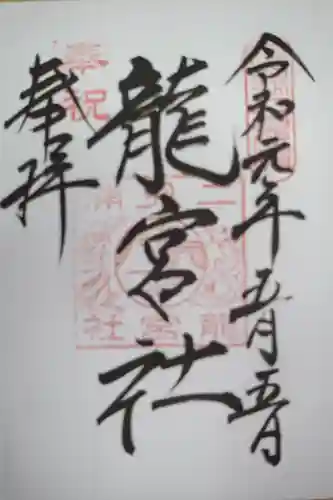 令和元年五月五日
龍宮社
奉拝
奉祝